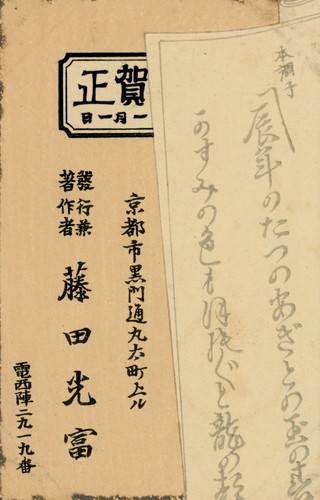 本調子
辰年のたつのあぎとの玉の
かすみの色もほの〴〵と龍の
賀正
一月一日
京都市黒門通丸太町上ル
發行兼
著作者
藤田光富
電西陣二九一九番